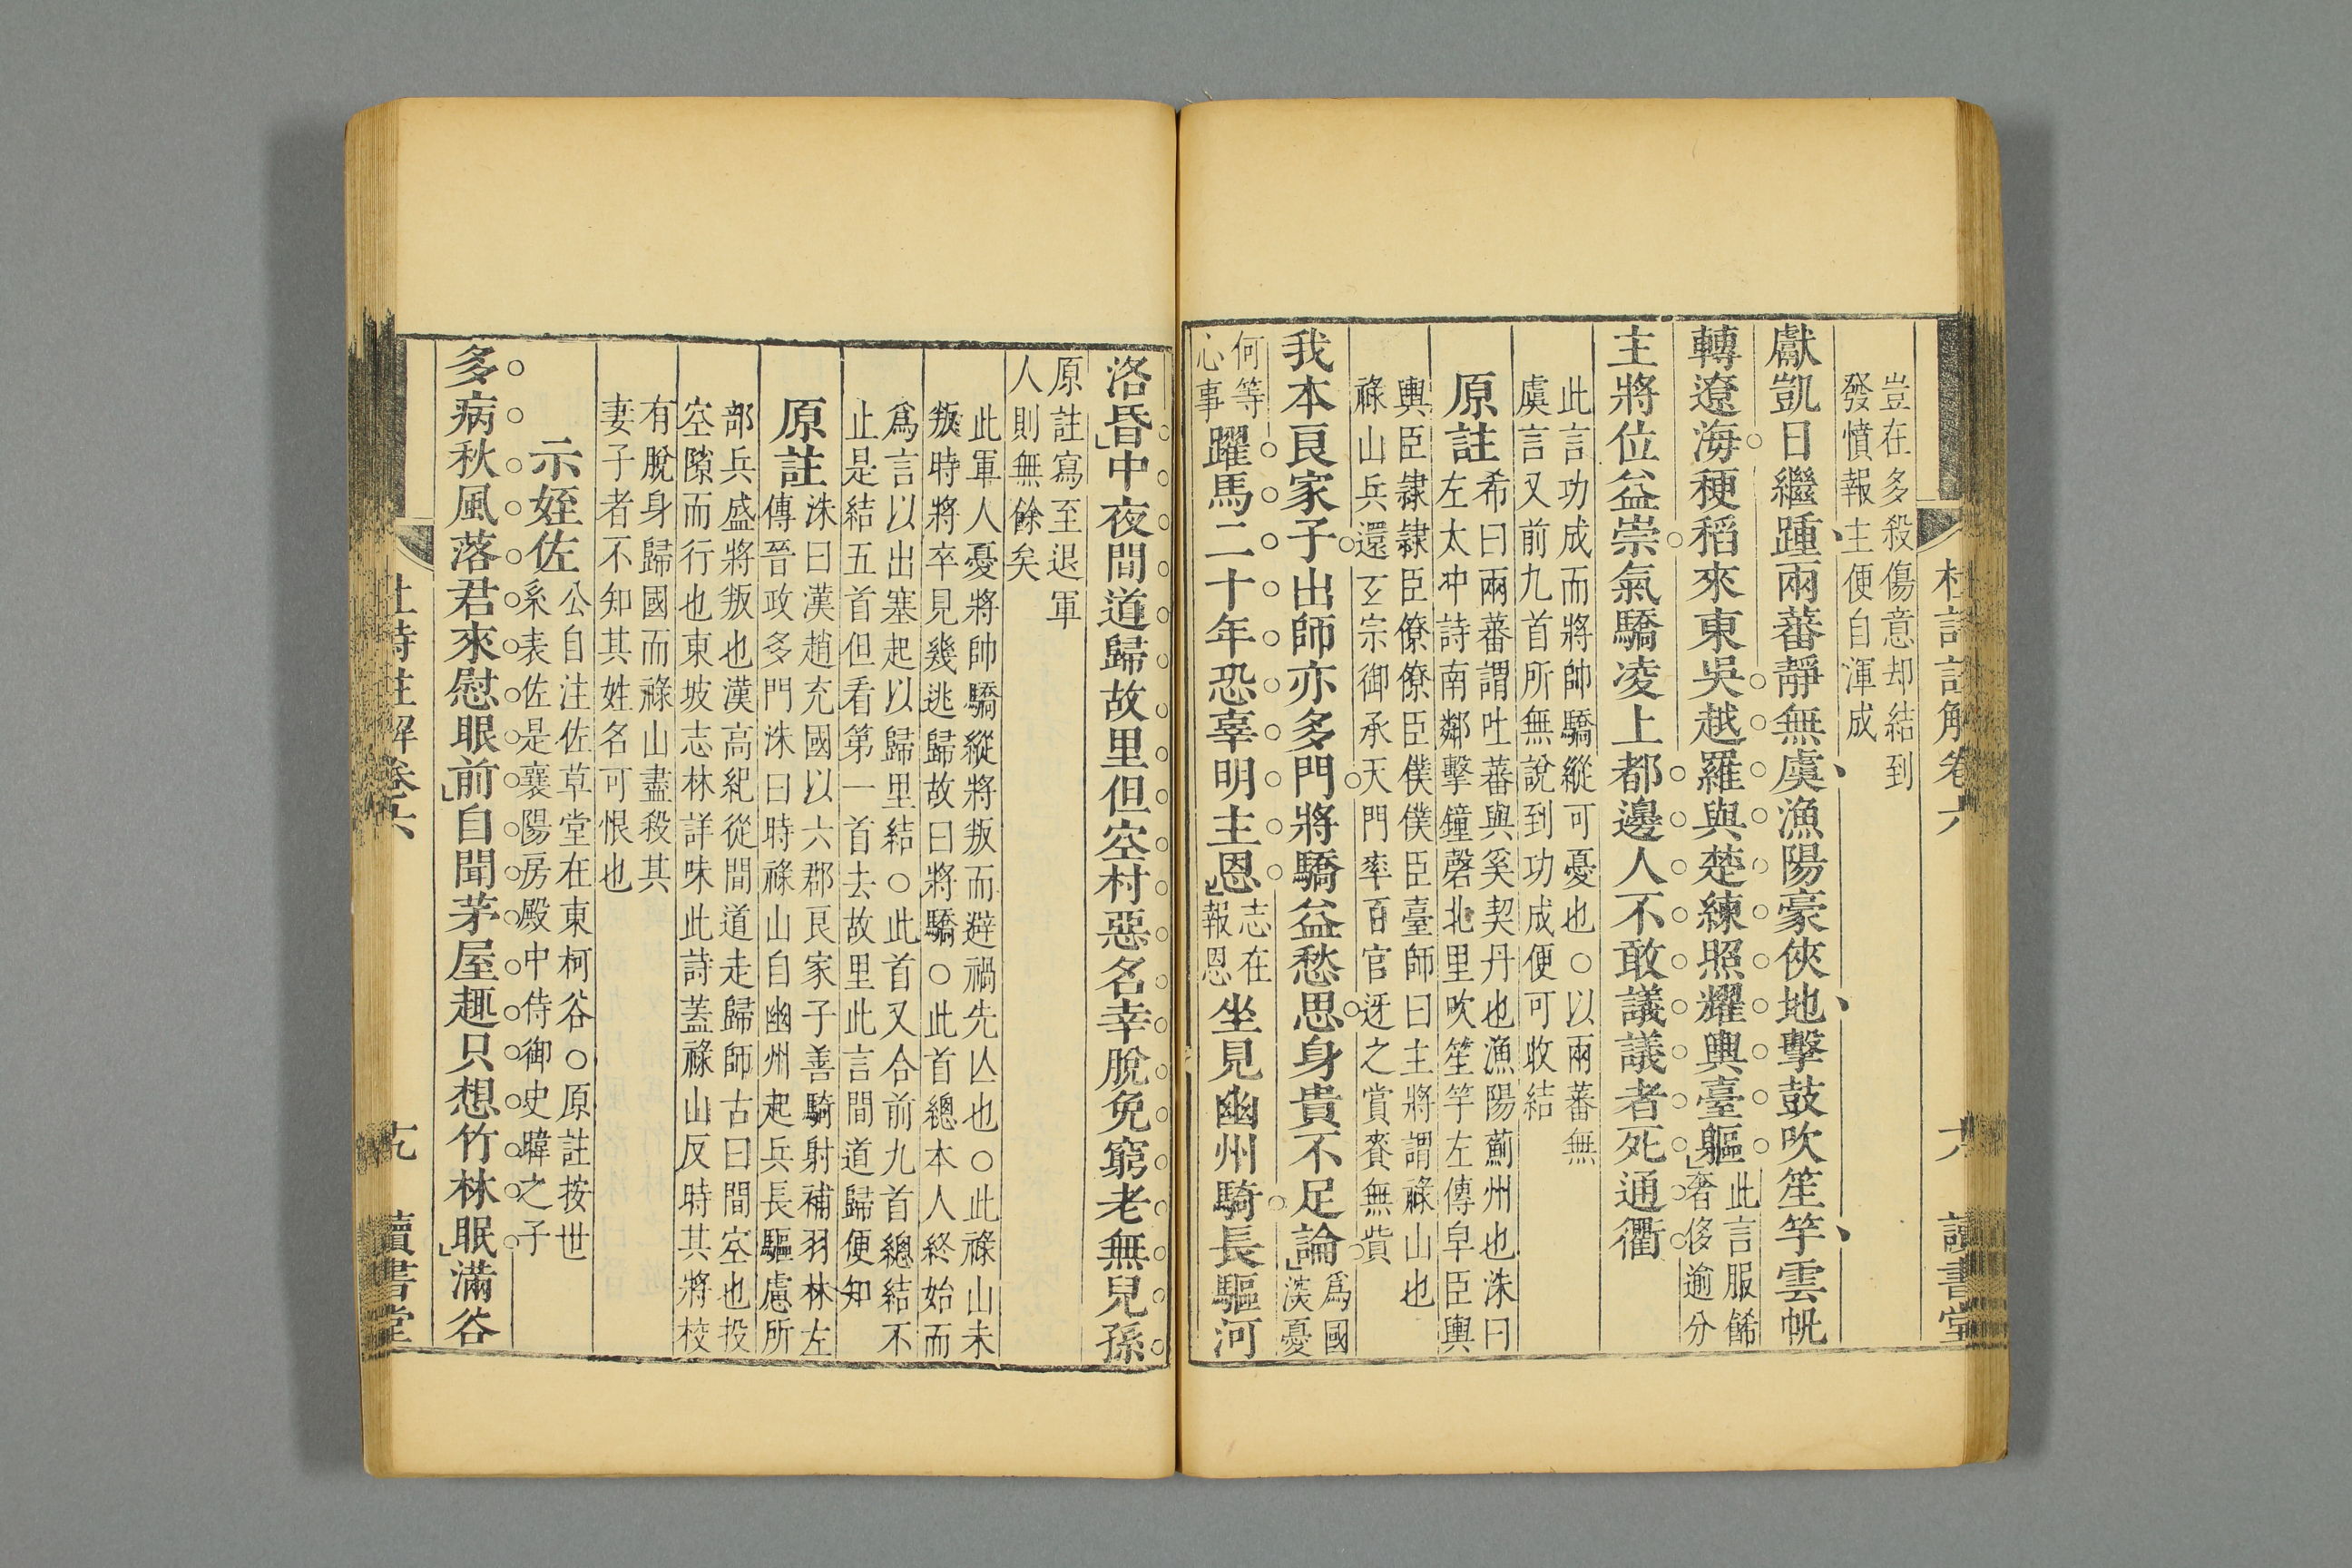 杜詩註解卷六
六
讀書堂
豈在多殺傷意却結到
發憤報主便自渾成
獻凱日繼踵兩蕃靜無虞漁陽豪俠地擊鼓吹笙竽雲帆
轉遼海稉稻來東吳越羅與楚練照耀輿臺軀此言服餙
奢侈逾分
主將位益崇氣驕凌上都邊人不敢議議者死通衢
此言功成而將帥驕縱可憂也○以兩蕃無
虞言又前九首所無說到功成便可收結
原註希曰兩蕃謂吐蕃與奚契丹也漁陽薊州也洙曰
左太冲詩南鄰擊鐘磬北里吹笙竽左傳皁臣輿
輿臣隸隸臣僚僚臣僕僕臣臺師曰主將謂祿山也
祿山兵還玄宗御承天門率百官迓之賞賚無貲
我本良家子出師亦多門將驕益愁思身貴不足論爲國
深憂
何等
心事躍馬二十年恐辜明主恩志在
報恩坐見幽州騎長驅河
洛昏中夜間道歸故里但空村惡名幸脫免窮老無兒孫
原註寫至退軍
人則無餘矣
此軍人憂將帥驕縱將叛而避禍先亾也○此祿山未
叛時將卒見幾逃歸故曰將驕○此首總本人終始而
爲言以出塞起以歸里結○此首又合前九首總結不
止是結五首但看第一首去故里此言間道歸便知
原註洙曰漢趙充國以六郡良家子善騎射補羽林左
傳晉政多門洙曰時祿山自幽州起兵長驅慮所
部兵盛將叛也漢高紀從間道走歸師古曰間空也投
空隙而行也東坡志林詳味此詩蓋祿山反時其將校
有脫身歸國而祿山盡殺其
妻子者不知其姓名可恨也
示姪佐公自注佐草堂在東柯谷○原註按世
系表佐是襄陽房殿中侍御史暐之子
多病秋風落君來慰眼前自聞茅屋趣只想竹林眠滿谷
杜詩註解卷六
十九
讀書堂